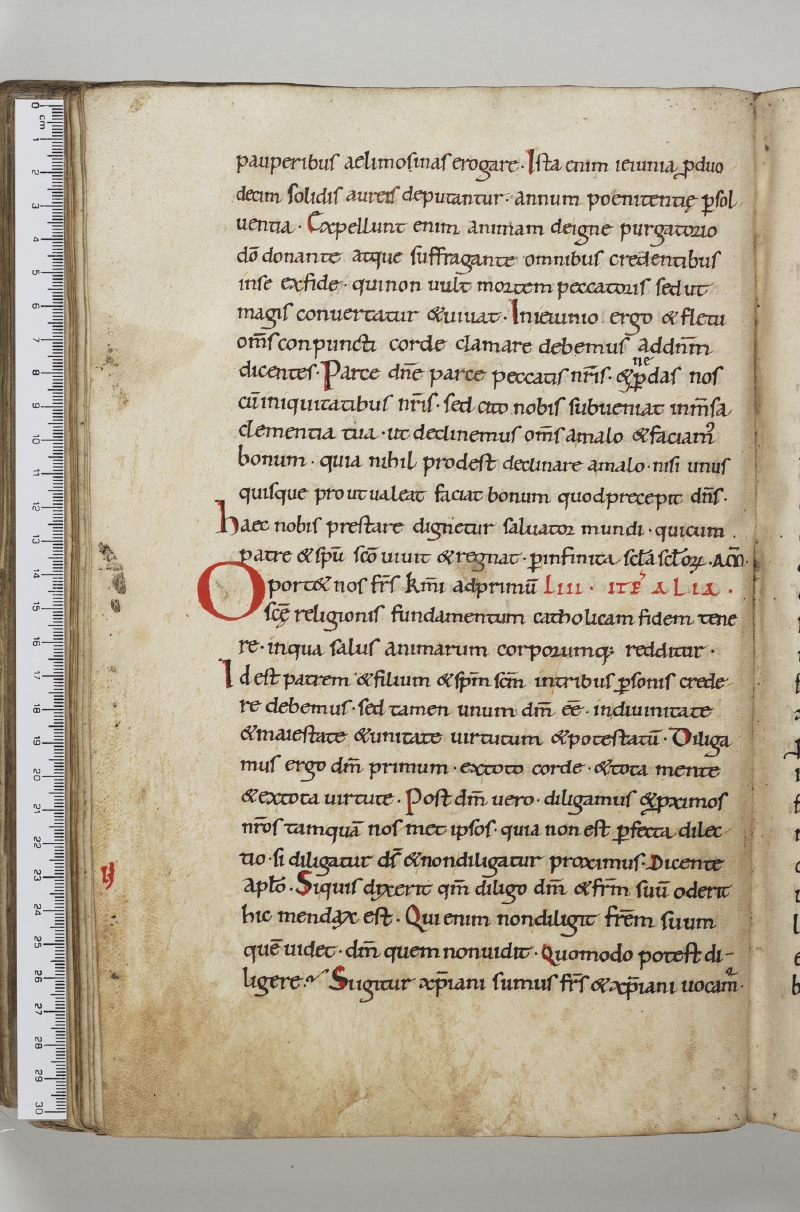 pauperibus aelimosinas erogare · Ista enim ieiunia ꝑduo
decim solidis aureis deputantur · annum poenitentię ꝑsol
uentia · Expellunt enim animam deigne purgatorio
dō donante atque suffragante omnibus credentibus
inse exfide · quinon uult mortem peccatoris sed ut
magis conuertatur &uiuat · Inieiunio ergo & fletu
om̄s conpuncti corde clamare debemus addn̄m
dicentes · Parce dn̄e parce peccatis nr̄is · & ne ꝑdas nos
cū iniquitatibus nr̄is · sed cito nobis subueniat inm̄sa
clementia tua · ut declinemus om̄s amalo &faciam᾽
bonum · quia nihil prodest declinare amalo · nisi unus
quisque prout ualeat faciat bonum quodprecepit dn̄s ·
haec nobis prestare dignetur saluator mundi · quicum
patre & sp̄u sc̄o uiuit & regnat · ꝑinfinita scl̄a scl̄oꝝ · AM̄
Oport& nos fr̄s km̄i adprimū LIII · ITĒ ALIA ·
scę̄ religionis fundamentum catholicam fidem tene
re · inqua salus animarum corporumq; redditur ·
Id est patrem &filium &sp̄m sc̄m intribus ꝑsonis crede
re debemus · sed tamen unum dm̄ ēē · indiuinitate
&maiestate &unitate uirtutum &potestatū · Diliga
mus ergo dm̄ primum · extoto corde · &tota mente
&extota uirtute · Post dm̄ uero · diligamus &ꝓximos
nr̄os tamquā nos met ipsos · quia non est ꝑfecta dilec
tio · si diligatur ds̄ &nondiligatur proximus · Dicente
apl̄o · Siquis dixerit qm̄ diligo dm̄ & fr̄m suū oderit
hic mendax est · Qui enim nondiligit fr̄em suum
quē uidet · dm̄ quem nonuidit · Quomodo potest di-
ligere · Sugitur xp̄iani sumus fr̄s &xp̄iani uocam᾽ ·